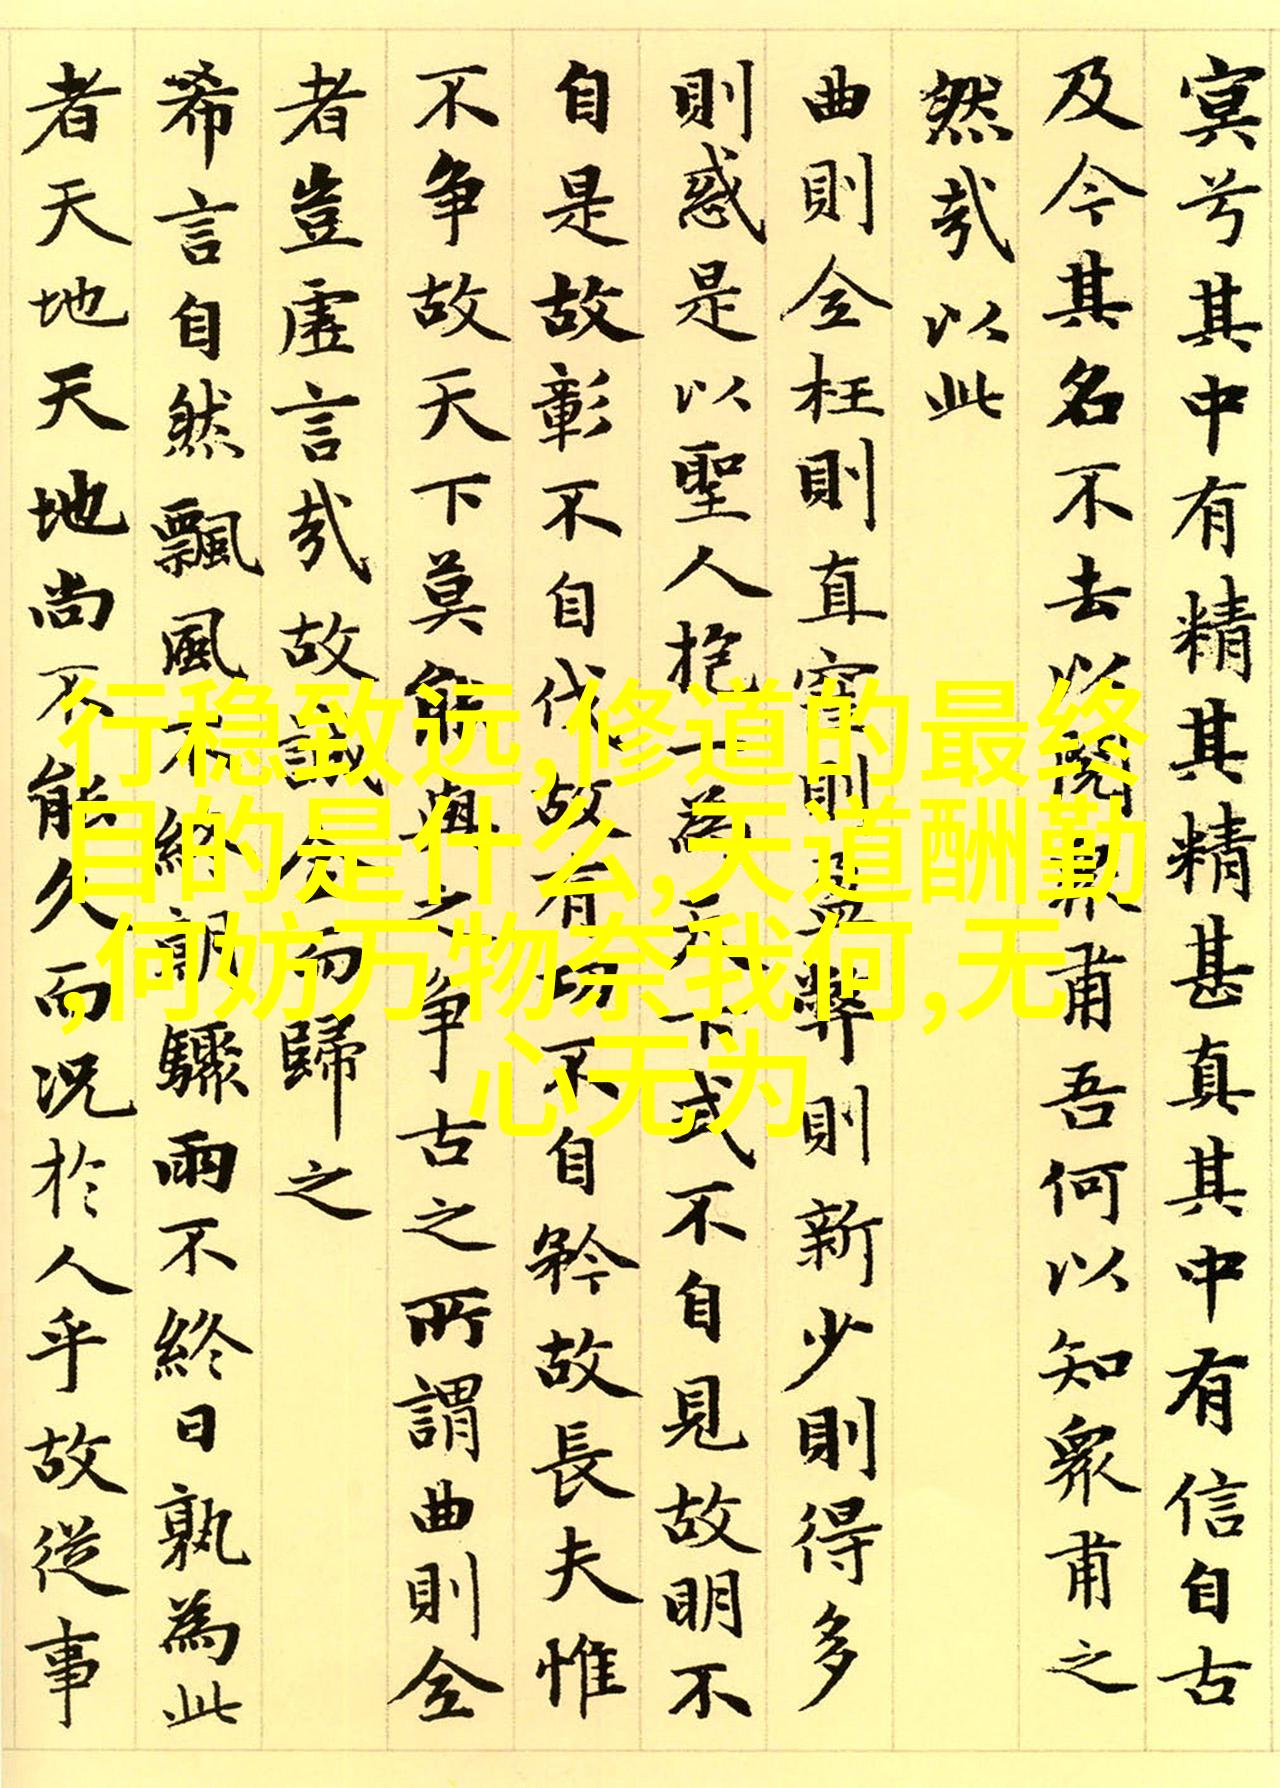 冥兮其中有精其精甚真其中有信自古
及今其名不去以閱衆甫吾何以知衆甫之
然哉以此
曲則全枉則直窪則盈弊則新少則得多
則惑是以聖人抱一為天下式不自見故明不
自是故彰不自伐故有功不自矜故長夫惟
不争故天下莫能與之争古之所謂曲則全
者豈虛言哉故誠全而歸之
希言自然飄風不終朝驟雨不終日孰為此
者天地天地尚不能久而況於人乎故從事
行稳致远,修道的最终
目的是什么,天道酬勤
,何妨万物奈我何,无
心无为